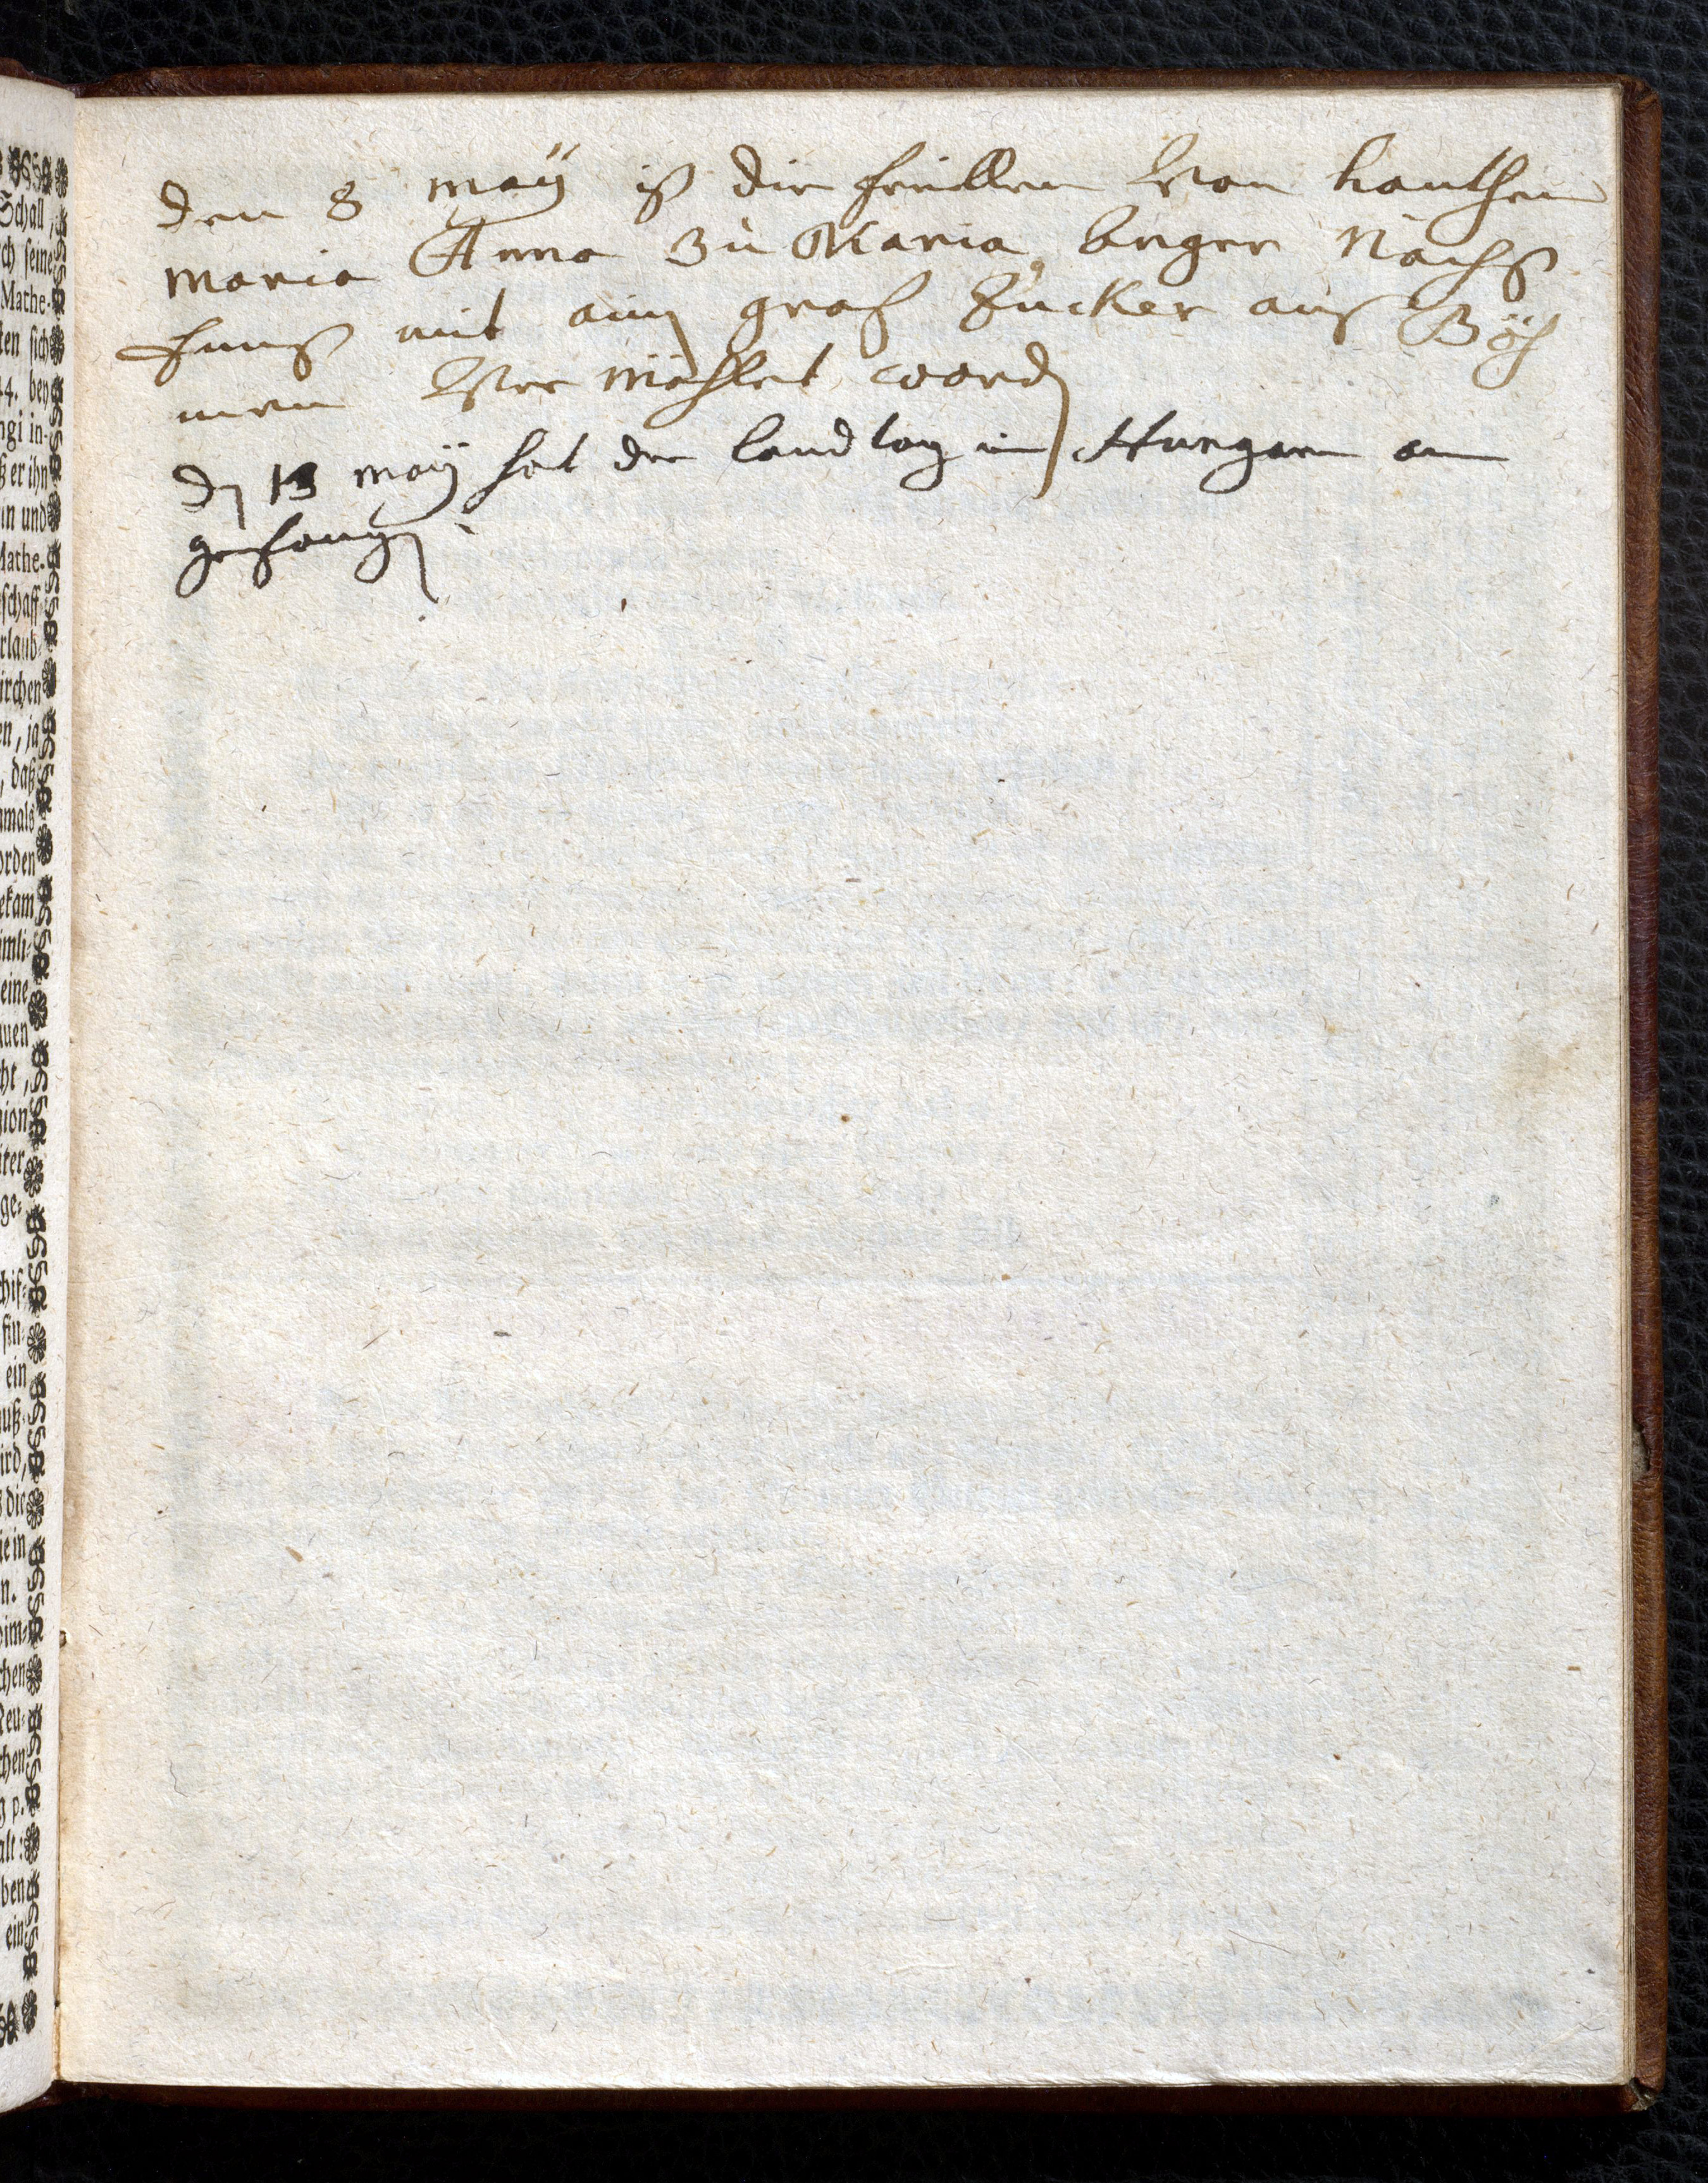 Schall,
ch seine
Mathe-
ten sich
44. bey
ngi in-
ß er ihn
in und
Mathe-
schaff-
rlaub-
irchen
en, ja
, daß
mals
orden
ekam
mli-
eine
uen
ht,
ion
ter
ge-
hif-
fin-
ein
uß-
ird,
die
ie in
n.
im-
chen
Reu-
chen
g p.
alt:
ben
ein
den 8 maÿ ist die freillen Von
maria Anna Zu Maria langer
mit ainē graf Zucker aus Böh
men Ver mählet wordē
dē 13 maÿ hat der landtag in Hungarn an
gefangē